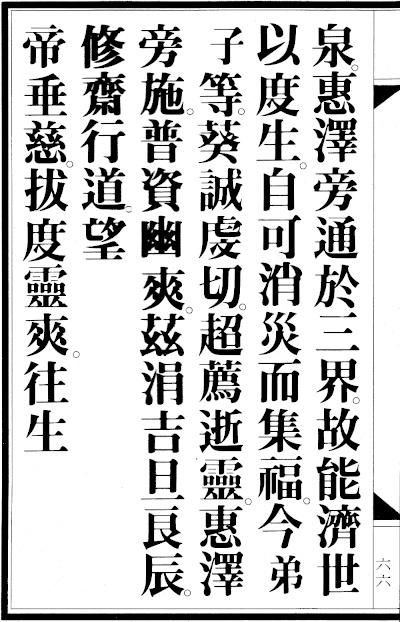 泉。惠澤旁通於三界。故能濟世
以度生。自可消災而集福。今弟
子等。葵誠虔切。超薦逝靈。惠澤
旁施。普資幽爽。茲涓吉旦良辰。
修齋行道。望
帝垂慈。拔度靈爽。往生
六六